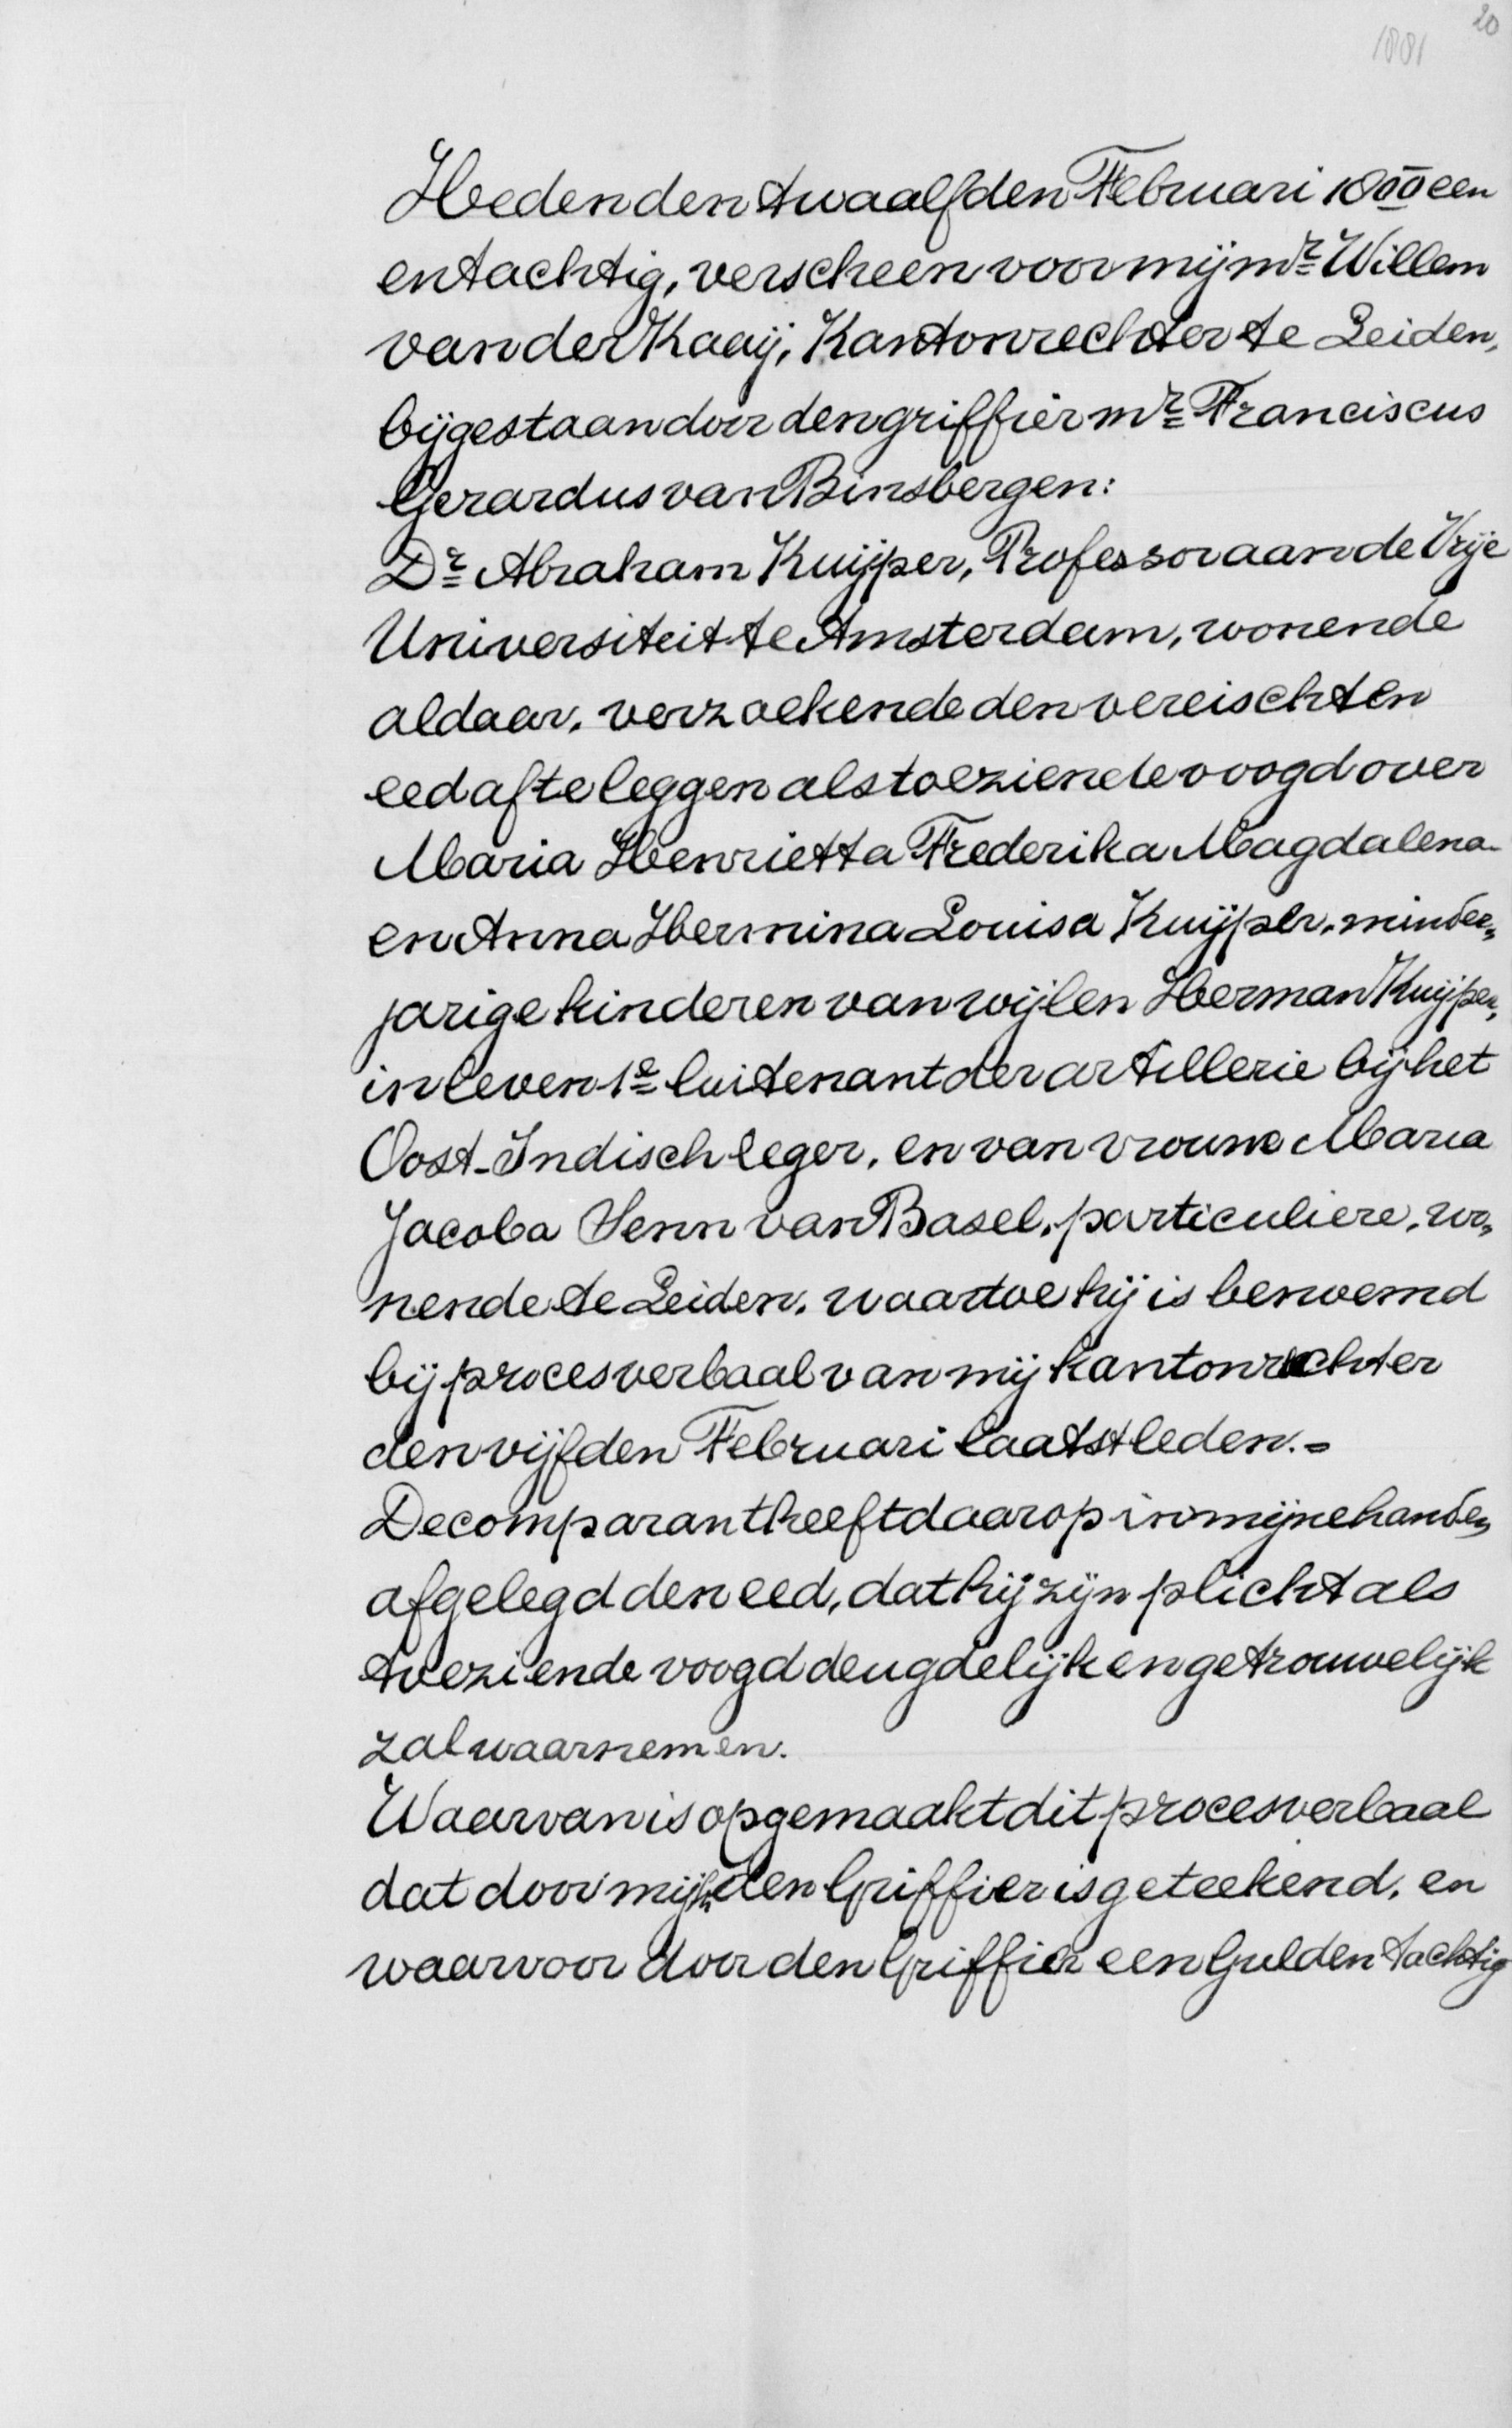 20
1881
Heden den twaalfden Februari 1800 een
en tachtig, verscheen voor mij mr Willem
van der Kaaij, Kantonrechter te Leiden,
bijgestaan door den griffier mr Franciscus
Gerardus van Binsbergen:
Dr Abraham Kuijper, Professor aan de Vrije
Universiteit te Amsterdam, wonende
aldaar, verzoekende den vereischten
eed af te leggen als toeziende voogd over
Maria Henrietta Frederika Magdalena
en Anna Hermina Louisa Kuijper, minder„
jarige kinderen van wijlen Herman Kuijper,
in leven 1e luitenant der artillerie bij het
Oost-Indisch leger, en van vrouwe Maria
Jacoba Senn van Basel, particuliere, wo„
nende te Leiden, waartoe hij is benoemd
bij procesverbaal van mij kantonrechter
den vijfden Februari laatstleden.=
De comparant heeft daarop in mijne handen
afgelegd den eed, dat hij zijn plicht als
toeziende voogd deugdelijk en getrouwelijk
zal waarnemen.
Waarvan is opgemaakt dit procesverbaal
dat door mij en den Griffier is geteekend, en
waarvoor door den Griffier een Gulden tachtig